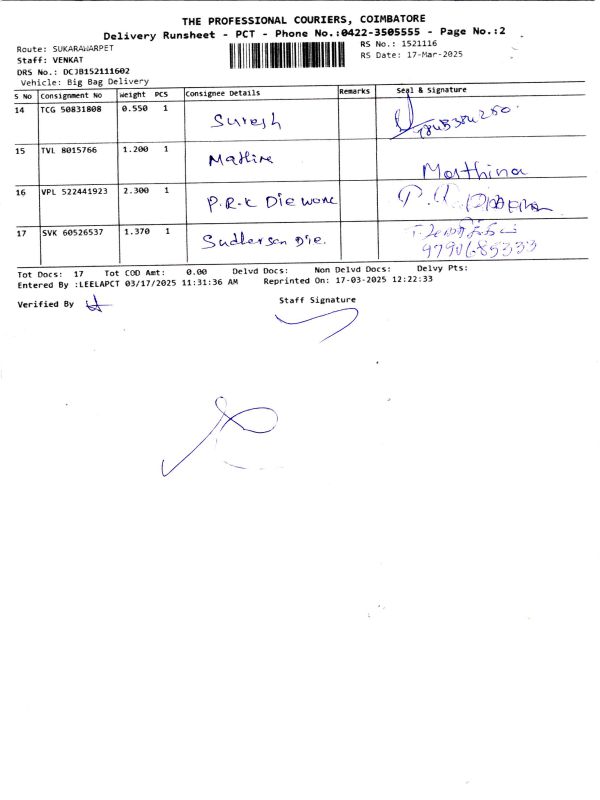 THE PROFESSIONAL COURIERS, COIMBATORE
Delivery Runsheet - PCT - Phone No.:0422-3505555 - Page No.:2
Route: SUKARAWARPET RS No.: 1521116
Staff: VENKAT RS Date: 17-Mar-2025
DRS No.: DCJB152111602
Vehicle: Big Bag Delivery
S No Consignment No Weight PCS Consignee Details Remarks Seal & Signature
14 TCG 50831808 0.550 1 Suresh
15 TVL 8015766 1.200 1 Marthina
16 VPL 522441923 2.300 1 P.R.K Die work
17 SVK 60526537 1.370 1 Die.
9790685333
Tot Docs: 17 Tot COD Amt: 0.00 Delvd Docs: Non Delvd Docs: Delvy Pts:
Entered By :LEELAPCT 03/17/2025 11:31:36 AM Reprinted On: 17-03-2025 12:22:33
Verified By Staff Signature